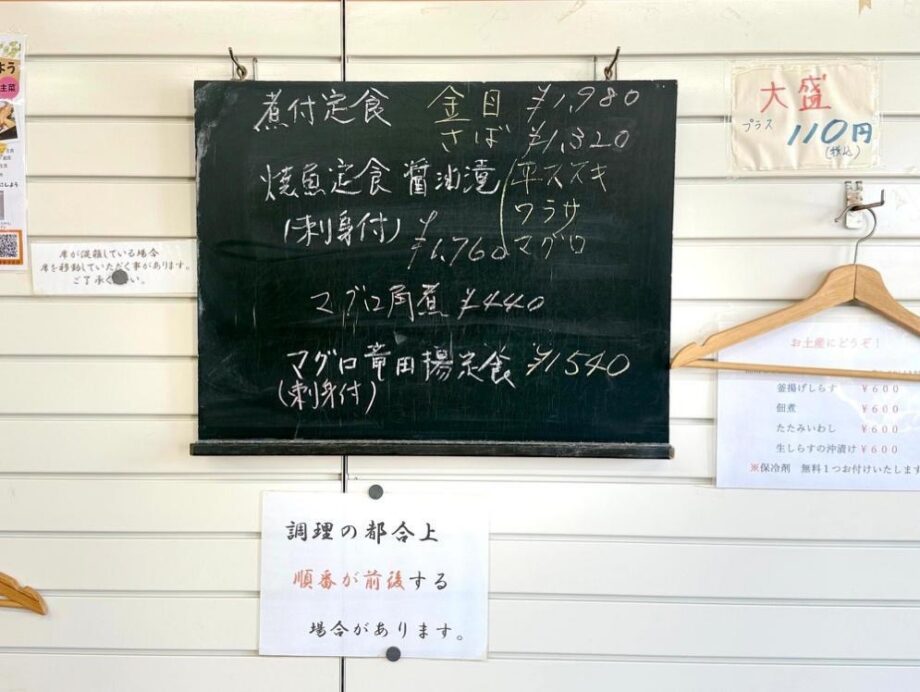 煮付定食 金目 ¥1,980
さば ¥1,320
焼魚定食 醤油漬 平スズキ
(刺身付) ワラサ
¥1,760 マグロ
マグロ角煮 ¥440
マグロ竜田揚定食 ¥1540
(刺身付)
大盛
プラス 110円
(税込)
よう
主菜
席が混雑している場合
席を移動していただく事があります。
ご了承く い。
お土産にどうぞ!
釜揚げしらす ¥600
佃煮 ¥600
たたみいわし ¥600
生しらすの沖漬け ¥600
※保冷剤 無料1つお付けいたします
調理の都合上
順番が前後する
場合があります。